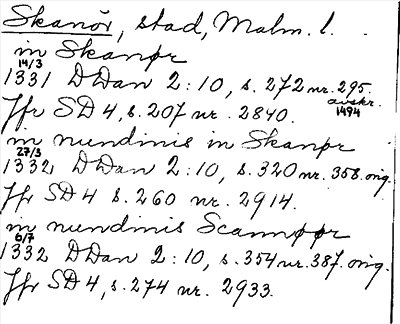 Skanör, stad, Malm. l.
in Skanør
14/3
1331 DDan 2:10, s. 272 nr. 295.
avskr. 1494
Jfr SD 4, s. 207 nr. 2840.
in nundinis in Skanør
27/3
1332 DDan 2:10, s. 320 nr. 358. orig.
Jfr SD 4 s. 260 nr. 2914.
in nundinis Scannøør
6/7
1332 DDan 2:10, s. 354 nr. 387. orig.
Jfr SD 4, s. 274 nr. 2933.